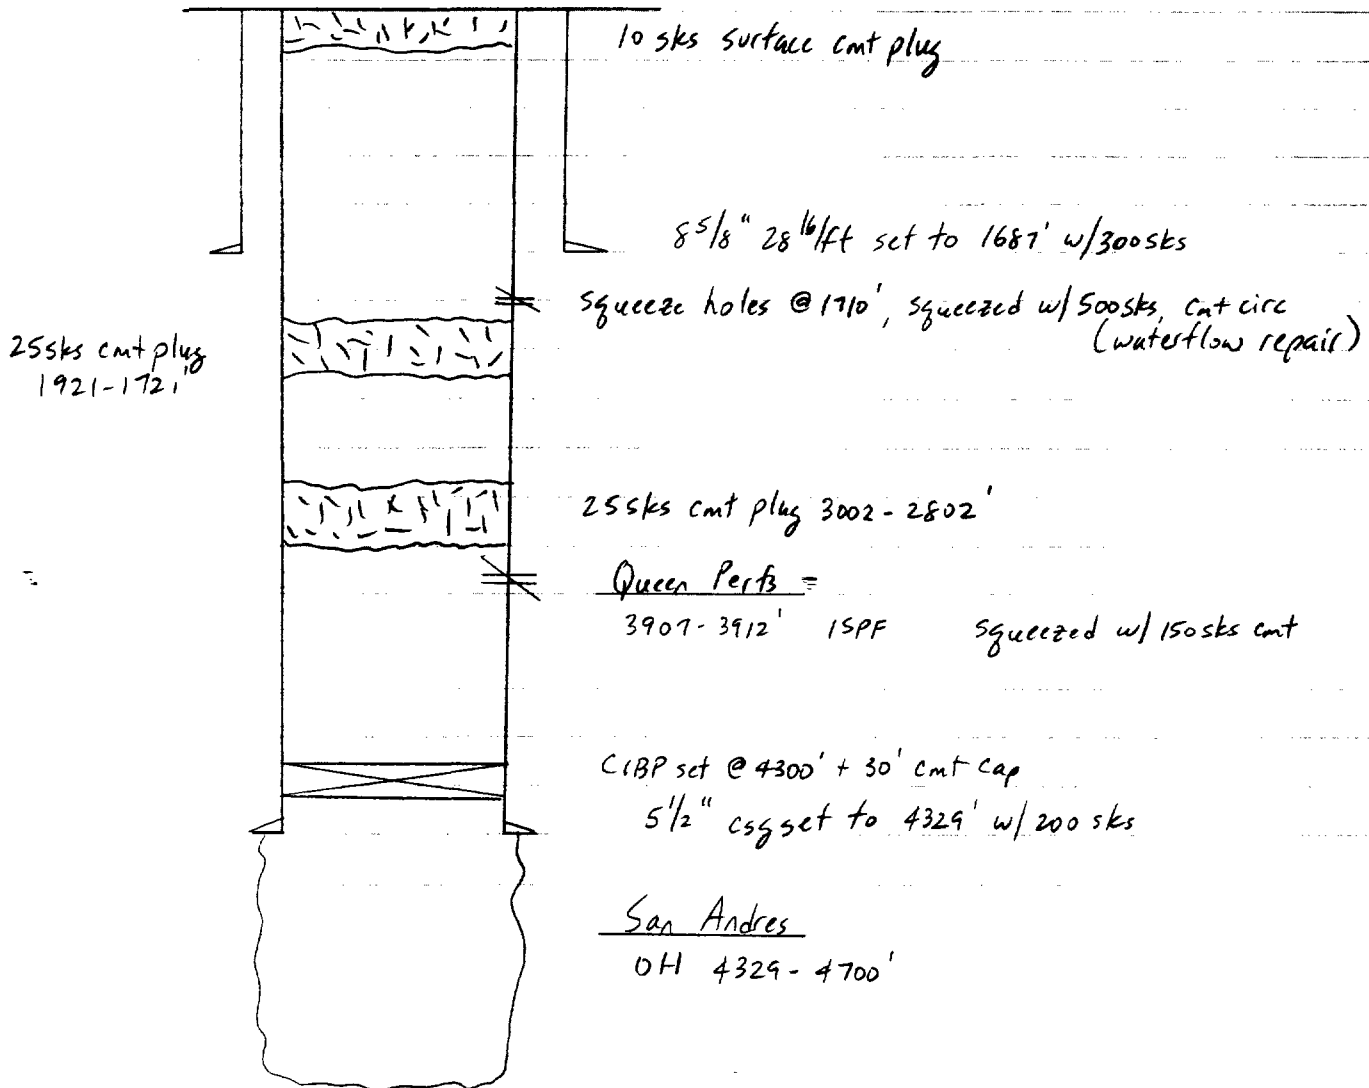 10 sks surface cmt plug
8 5/8" 28 lb/ft set to 1687' w/300sks
squeeze holes @ 1710', squeezed w/ 500sks, cmt circ
(waterflow repair)
25sks cmt plug
1921-1721'
25sks cmt plug 3002-2802'
Queen Perfs =
3907-3912' 1SPF squeezed w/ 150sks cmt
CIBP set @ 4300' + 30' cmt cap
5 1/2" csg set to 4329' w/ 200 sks
San Andres
OH 4329-4700'